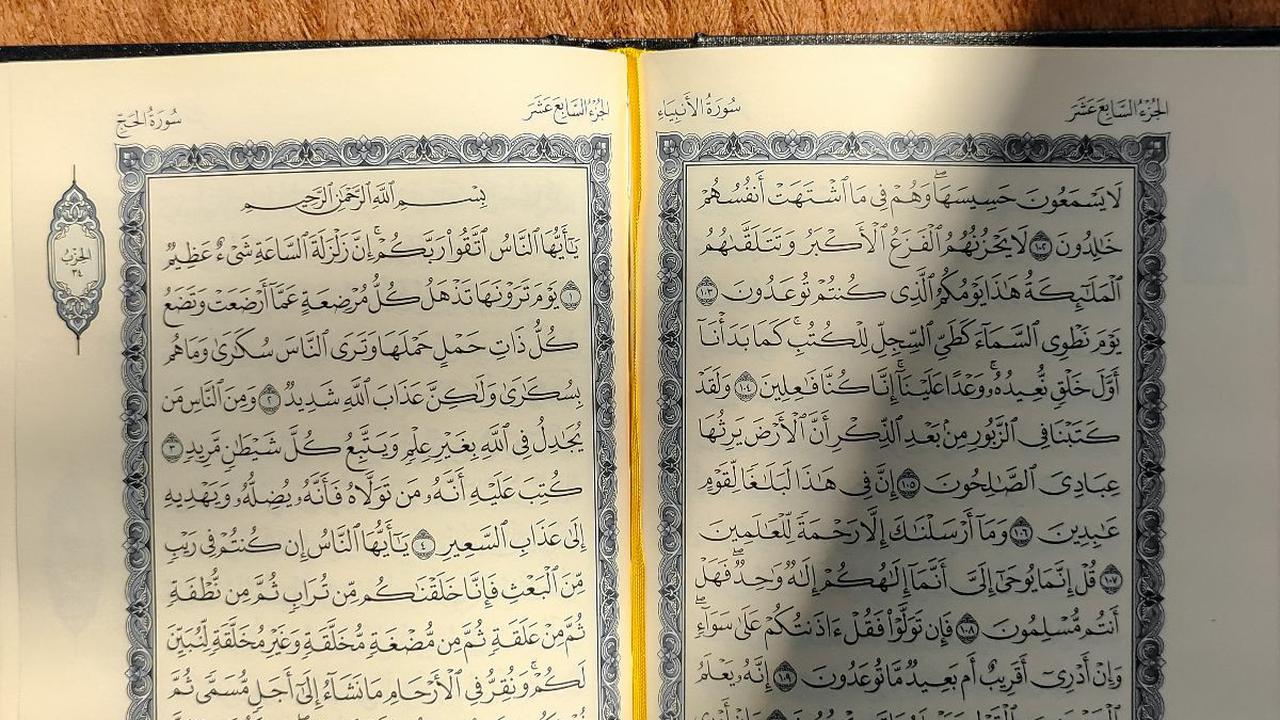 الجزء السابع عشر
سورة الأنبياء
لَا يَسْمَعُونَ حَسِيسَهَاۖ وَهُمْ فِى مَا ٱشْتَهَتْ أَنفُسُهُمْ
خَٰلِدُونَ ١٠٢ لَا يَحْزُنُهُمُ ٱلْفَزَعُ ٱلْأَكْبَرُ وَتَتَلَقَّىٰهُمُ
ٱلْمَلَٰٓئِكَةُ هَٰذَا يَوْمُكُمُ ٱلَّذِى كُنتُمْ تُوعَدُونَ ١٠٣
يَوْمَ نَطْوِى ٱلسَّمَآءَ كَطَىِّ ٱلسِّجِلِّ لِلْكُتُبِۚ كَمَا بَدَأْنَآ
أَوَّلَ خَلْقٍ نُّعِيدُهُۥۚ وَعْدًا عَلَيْنَآۚ إِنَّا كُنَّا فَٰعِلِينَ ١٠٤ وَلَقَدْ
كَتَبْنَا فِى ٱلزَّبُورِ مِنۢ بَعْدِ ٱلذِّكْرِ أَنَّ ٱلْأَرْضَ يَرِثُهَا
عِبَادِىَ ٱلصَّٰلِحُونَ ١٠٥ إِنَّ فِى هَٰذَا لَبَلَٰغًا لِّقَوْمٍ
عَٰبِدِينَ ١٠٦ وَمَآ أَرْسَلْنَٰكَ إِلَّا رَحْمَةً لِّلْعَٰلَمِينَ
١٠٧ قُلْ إِنَّمَا يُوحَىٰٓ إِلَىَّ أَنَّمَآ إِلَٰهُكُمْ إِلَٰهٌ وَٰحِدٌۖ فَهَلْ
أَنتُم مُّسْلِمُونَ ١٠٨ فَإِن تَوَلَّوْا۟ فَقُلْ ءَاذَنتُكُمْ عَلَىٰ سَوَآءٍۖ
وَإِنْ أَدْرِىٓ أَقَرِيبٌ أَم بَعِيدٌ مَّا تُوعَدُونَ ١٠٩ إِنَّهُۥ يَعْلَمُ
الجزء السابع عشر
سورة الحج
الحزب ٣٤
بِسْمِ ٱللَّهِ ٱلرَّحْمَٰنِ ٱلرَّحِيمِ
يَٰٓأَيُّهَا ٱلنَّاسُ ٱتَّقُوا۟ رَبَّكُمْۚ إِنَّ زَلْزَلَةَ ٱلسَّاعَةِ شَىْءٌ عَظِيمٌ
١ يَوْمَ تَرَوْنَهَا تَذْهَلُ كُلُّ مُرْضِعَةٍ عَمَّآ أَرْضَعَتْ وَتَضَعُ
كُلُّ ذَاتِ حَمْلٍ حَمْلَهَا وَتَرَى ٱلنَّاسَ سُكَٰرَىٰ وَمَا هُم
بِسُكَٰرَىٰ وَلَٰكِنَّ عَذَابَ ٱللَّهِ شَدِيدٌ ٢ وَمِنَ ٱلنَّاسِ مَن
يُجَٰدِلُ فِى ٱللَّهِ بِغَيْرِ عِلْمٍ وَيَتَّبِعُ كُلَّ شَيْطَٰنٍ مَّرِيدٍ ٣
كُتِبَ عَلَيْهِ أَنَّهُۥ مَن تَوَلَّاهُ فَأَنَّهُۥ يُضِلُّهُۥ وَيَهْدِيهِ
إِلَىٰ عَذَابِ ٱلسَّعِيرِ ٤ يَٰٓأَيُّهَا ٱلنَّاسُ إِن كُنتُمْ فِى رَيْبٍ
مِّنَ ٱلْبَعْثِ فَإِنَّا خَلَقْنَٰكُم مِّن تُرَابٍ ثُمَّ مِن نُّطْفَةٍ
ثُمَّ مِنْ عَلَقَةٍ ثُمَّ مِن مُّضْغَةٍ مُّخَلَّقَةٍ وَغَيْرِ مُخَلَّقَةٍ لِّنُبَيِّنَ
لَكُمْۚ وَنُقِرُّ فِى ٱلْأَرْحَامِ مَا نَشَآءُ إِلَىٰٓ أَجَلٍ مُّسَمًّى ثُمَّ